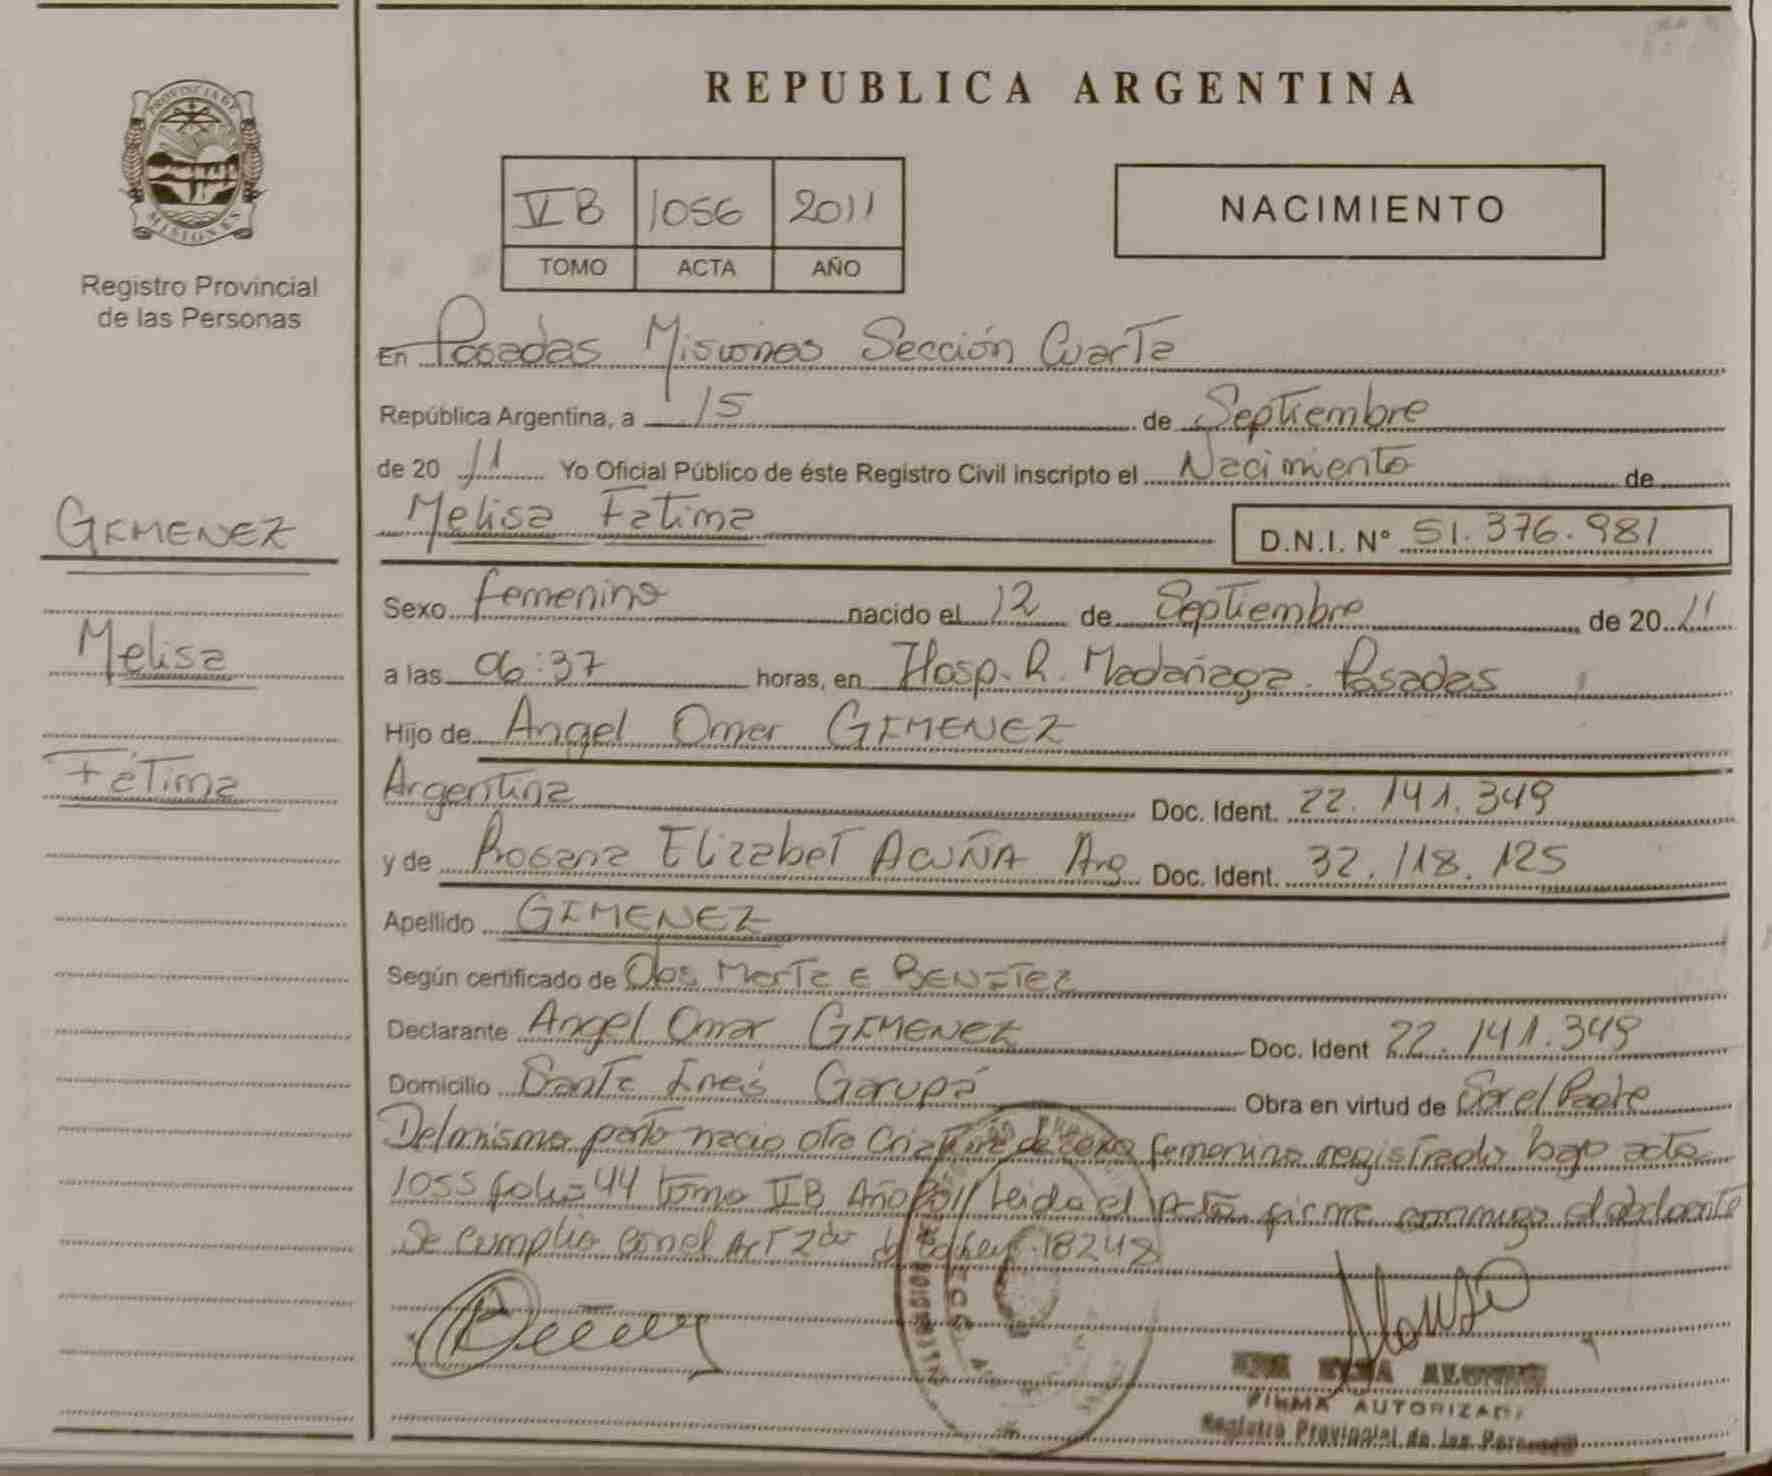 PROVINCIA DE
MISIONES
Registro Provincial
de las Personas
GIMENEZ
Melisa
Fátima
REPUBLICA ARGENTINA
VB 1056 2011
TOMO ACTA AÑO
NACIMIENTO
En Posadas Misiones Sección Cuarta
República Argentina, a 15 de Septiembre
de 20 11 Yo Oficial Público de éste Registro Civil inscripto el Nacimiento de
Melisa Fatima D.N.I. Nº 51.376.981
Sexo femenino nacido el 12 de Septiembre de 20 11
a las 06:37 horas, en Hosp. R. Madariaga. Posadas
Hijo de Angel Omar GIMENEZ
Argentina Doc. Ident. 22.141.349
y de Rosana Elizabet ACUÑA Arg Doc. Ident. 32.118.125
Apellido GIMENEZ
Según certificado de Obs Marta E BENITEZ
Declarante Angel Omar GIMENEZ Doc. Ident 22.141.349
Domicilio Santa Inés Garupá Obra en virtud de Ser el Padre
Del mismo parto nacio otra Criatura de sexo femenino registrado bajo acta
1055 folio 44 tomo VB Año 2011 Leida el Acta firma conmigo el declarante
Se cumplio con el Art 2do de la Ley 18248
FIRMA AUTORIZADA
Registro Provincial de las Personas